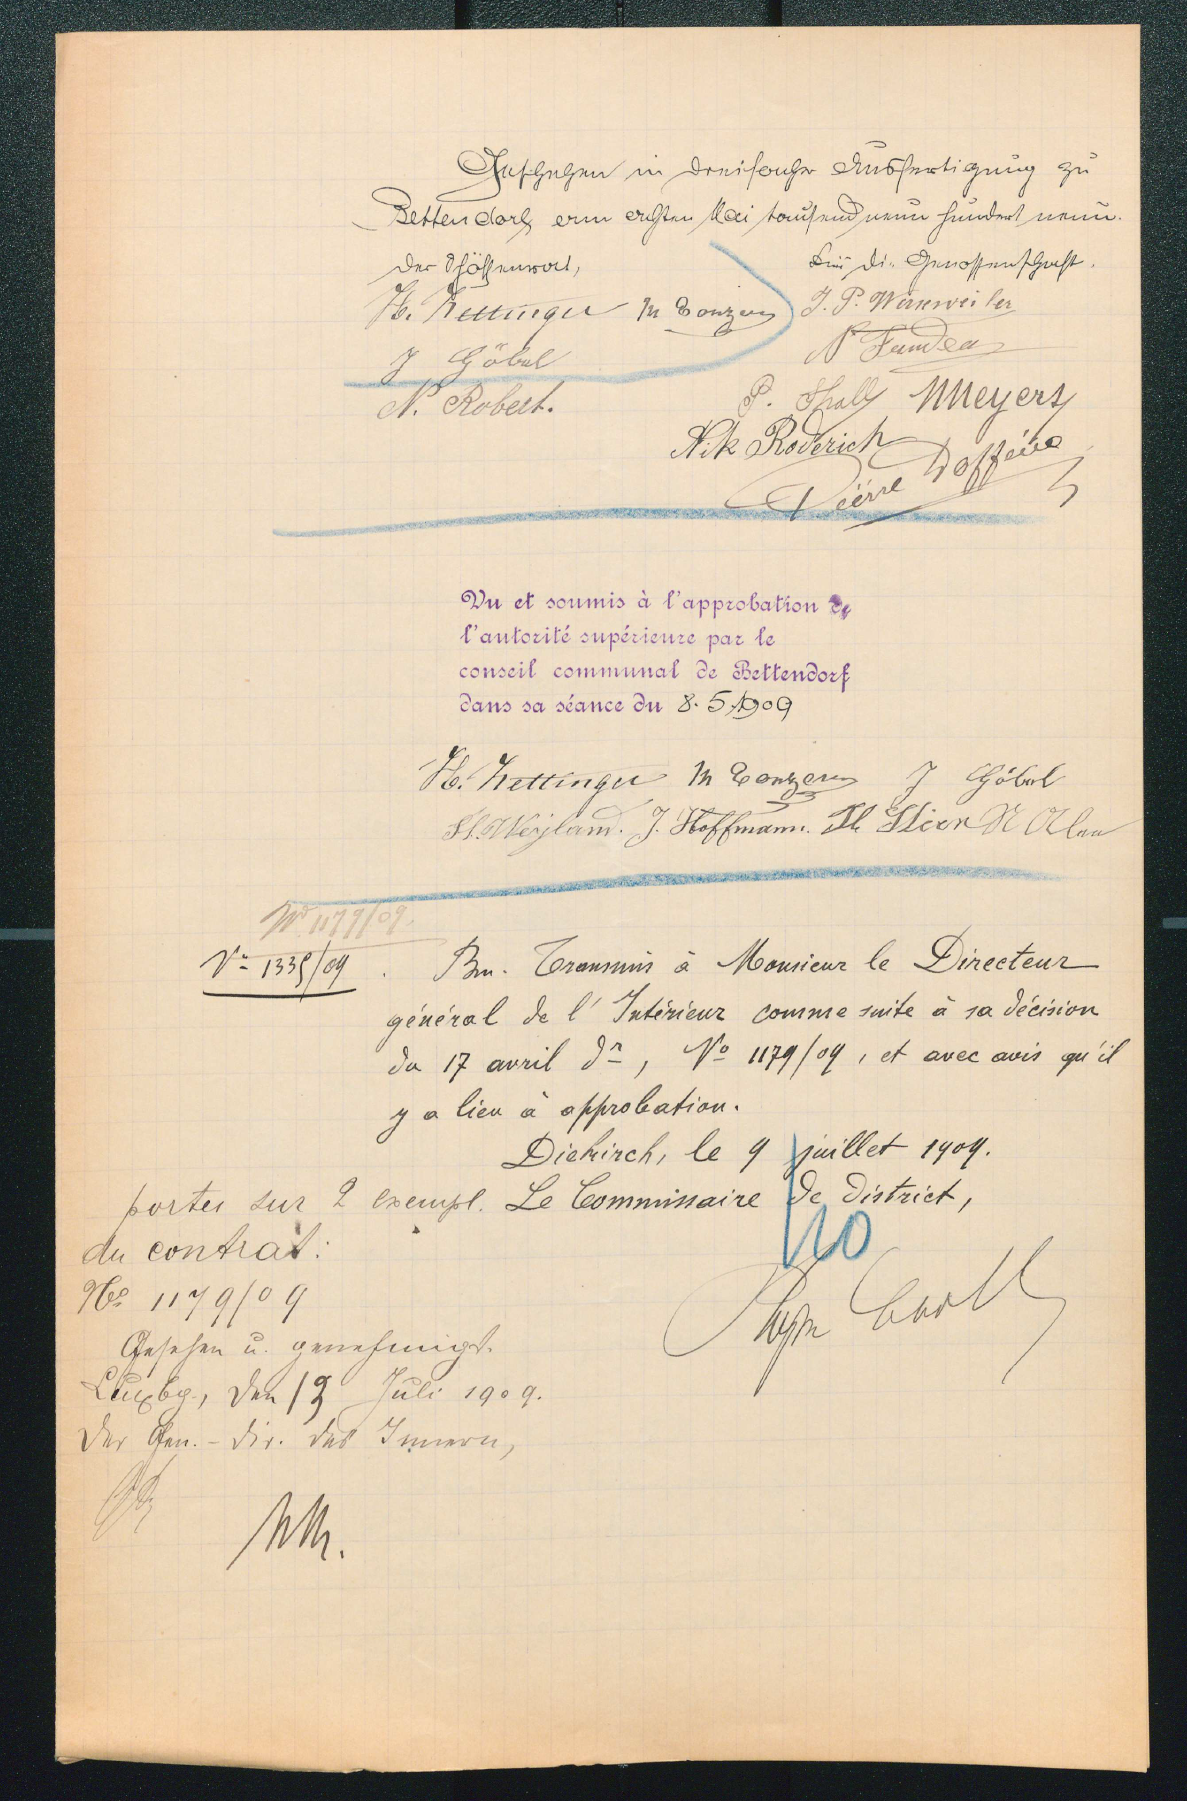 Geschehen in dreifacher Ausfertigung zu
Bettendorf am achten Mai tausend neun hundert neun.
Der Schöffenrat,
Für die Genossenschaft.
H. Kettinger M Conzem J. P. Wirwweiler
J Göbel
N. Robert.
P. Thall M Meyers
Nik Roderich
PierreOfféna
Vu et soumis à l'approbation de
l'autorité supérieure par le
conseil communal de Bettendorf
dans sa séance du 8. 5. 1909
H. Kettinger M Conzem J Göbel
H. Weyland. J. Hoffmann.
Nº 1179/09.
Nº 1335/09. Bm. Transmis à Monsieur le Directeur
général de l'Intérieur comme suite à sa décision
du 17 avril dr, Nº 1179/09, et avec avis qu'il
y a lieu à approbation.
Diekirch, le 9 juillet 1909.
porter sur 2 exempl. Le Commissaire de district,
du contrat:
Nº 1179/09
Gesehen u. genehmigt.
Luxbg., den 13 Juli 1909.
Der Gen.-Dir. des Innern,